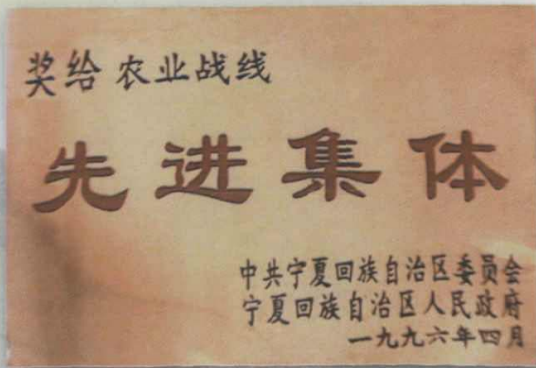 奖给 农业战线
先进集体
中共宁夏回族自治区委员会
宁夏回族自治区人民政府
一九九六年四月